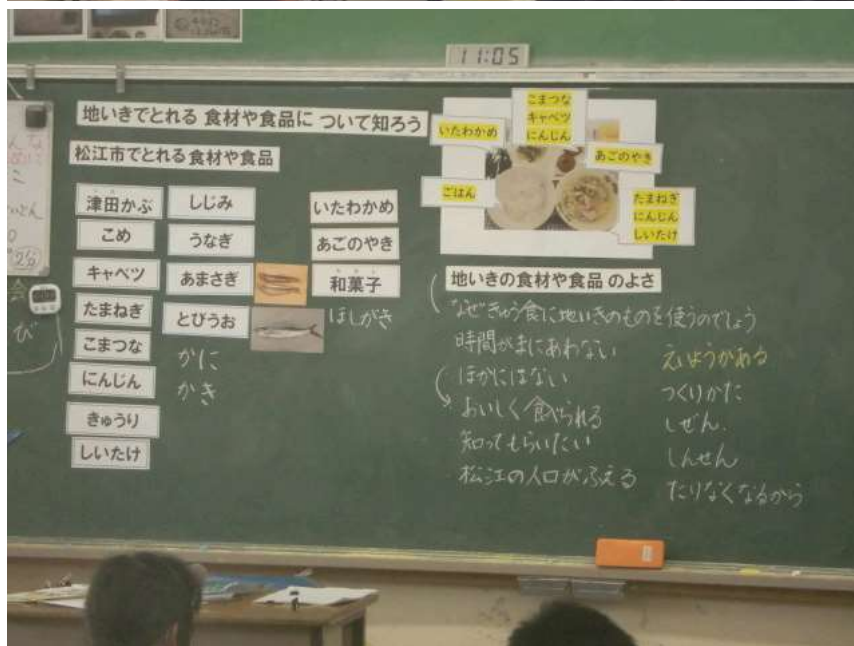 11:05
地いきでとれる 食材や食品に ついて知ろう
松江市でとれる食材や食品
津田かぶ
こめ
キャベツ
たまねぎ
こまつな
にんじん
きゅうり
しいたけ
しじみ
うなぎ
あまさぎ
とびうお
かに
かき
いたわかめ
あごのやき
和菓子
ほしがき
いたわかめ
こまつな
キャベツ
にんじん
あごのやき
ごはん
たまねぎ
にんじん
しいたけ
地いきの食材や食品 のよさ
なぜきゅう食に地いきのものを使うのでしょう
時間がまにあわない
ほかにはない
おいしく食べられる
知ってもらいたい
松江の人口がふえる
えいようがある
つくりかた
しぜん
しんせん
たりなくなるから